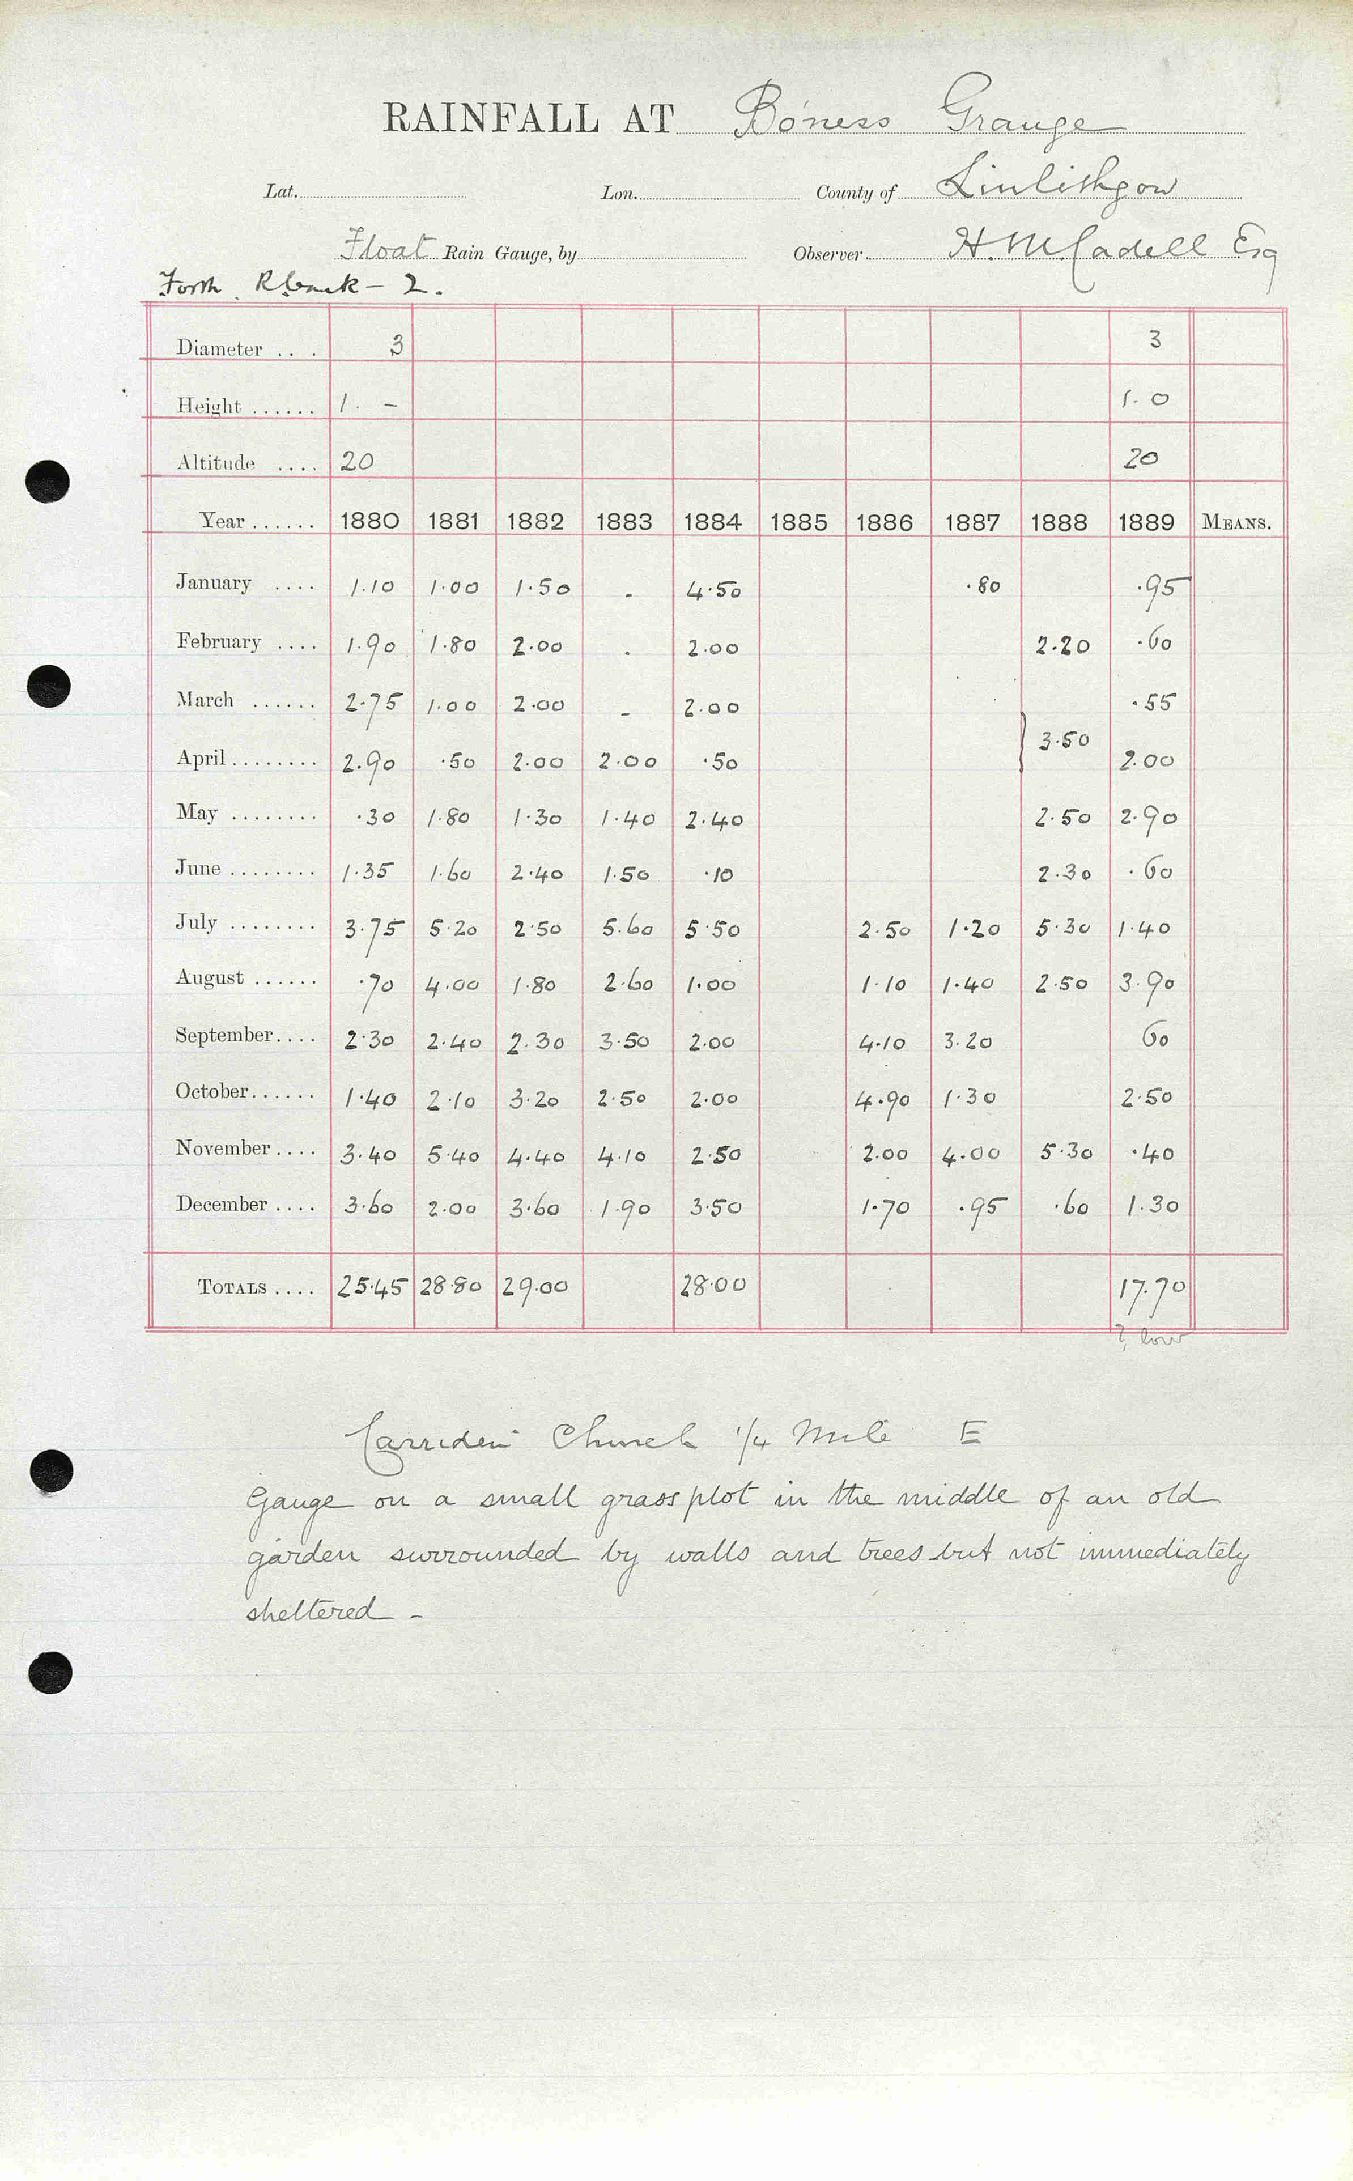 RAINFALL AT Bo'ness Grange
Lat. Lon. County of Linlithgow
Float Rain Gauge, by Observer H. M Cadell Esq
Forth R. bank - 2.
Diameter . . . 3 3
Height . . . . . . 1. - 1. 0
Altitude . . . . 20 20
Year . . . . . . 1880 1881 1882 1883 1884 1885 1886 1887 1888 1889 MEANS.
January . . . . 1.10 1.00 1.50 - 4.50 .80 .95
February . . . . 1.90 1.80 2.00 - 2.00 2.20 .60
March . . . . . . 2.75 1.00 2.00 - 2.00 .55
} 3.50
April . . . . . . . . 2.90 .50 2.00 2.00 .50 2.00
May . . . . . . . . .30 1.80 1.30 1.40 2.40 2.50 2.90
June . . . . . . . . 1.35 1.60 2.40 1.50 .10 2.30 .60
July . . . . . . . . 3.75 5.20 2.50 5.60 5.50 2.50 1.20 5.30 1.40
August . . . . . . .70 4.00 1.80 2.60 1.00 1.10 1.40 2.50 3.90
September. . . . 2.30 2.40 2.30 3.50 2.00 4.10 3.20 60
October. . . . . . 1.40 2.10 3.20 2.50 2.00 4.90 1.30 2.50
November . . . . 3.40 5.40 4.40 4.10 2.50 2.00 4.00 5.30 .40
December . . . . 3.60 2.00 3.60 1.90 3.50 1.70 .95 .60 1.30
TOTALS . . . . 25.45 28.80 29.00 28.00 17.70
? low
Carriden Church 1/4 Mile E
Gauge on a small grass plot in the middle of an old
garden surrounded by walls and trees but not immediately
sheltered -